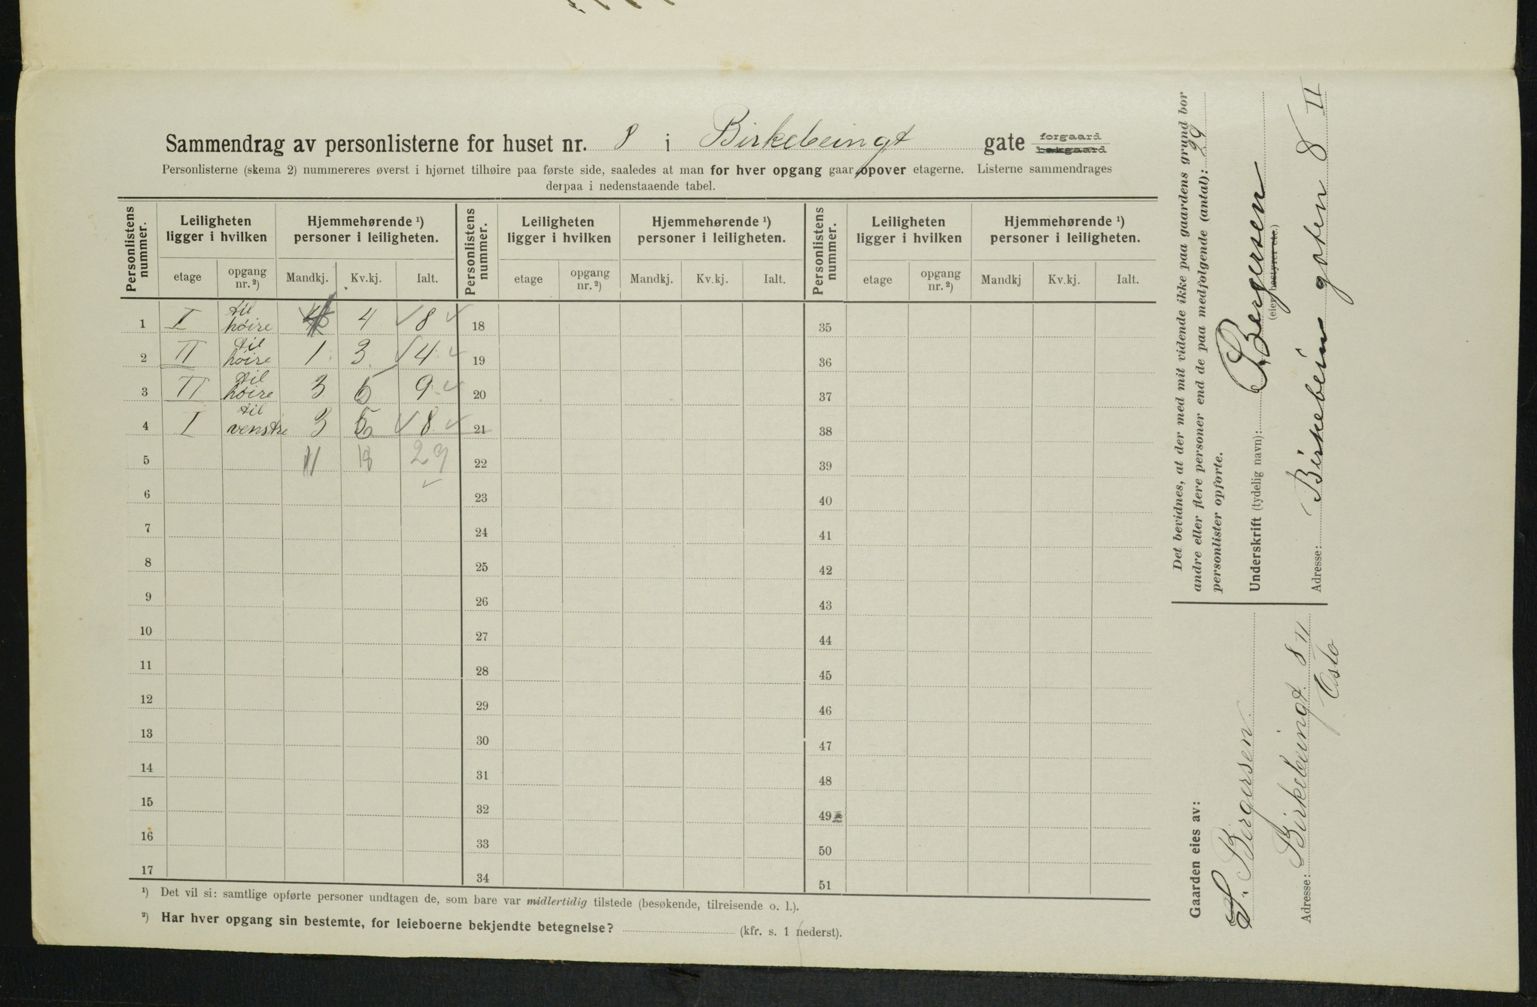 Sammendrag av personlisterne for huset nr. 8 i Birkebeingt gate forgaard
bakgaard
Personlisterne (skema 2) nummereres øverst i hjørnet tilhøire paa første side, saaledes at man for hver opgang gaar opover etagerne. Listerne sammendrages
derpaa i nedenstaaende tabel.
Personlistens nummer. Leiligheten ligger i hvilken Hjemmehørende ¹) personer i leiligheten. Personlistens nummer. Leiligheten ligger i hvilken Hjemmehørende ¹) personer i leiligheten. Personlistens nummer. Leiligheten ligger i hvilken Hjemmehørende ¹) personer i leiligheten.
etage opgang nr. ²) Mandkj. Kv.kj. Ialt. etage opgang nr. ²) Mandkj. Kv.kj. Ialt. etage opgang nr. ²) Mandkj Kv.kj. Ialt.
1 I til høire 4 4 8 18 35
2 II til høire 1 3 4 19 36
3 II til høire 3 6 9 20 37
4 I til venstre 3 5 8 21 38
5 11 18 29 22 39
6 23 40
7 24 41
8 25 42
9 26 43
10 27 44
11 28 45
12 29 46
13 30 47
14 31 48
15 32 49
16 33 50
17 34 51
¹) Det vil si: samtlige opførte personer undtagen de, som bare var midlertidig tilstede (besøkende, tilreisende o. l.).
²) Har hver opgang sin bestemte, for leieboerne bekjendte betegnelse? (kfr. s. 1 nederst).
Det bevidnes, at der med mit vidende ikke paa gaardens grund bor
andre eller flere personer end de paa medfølgende (antal): 29
personlister opførte.
Underskrift (tydelig navn): Bergersen
(eier, bestyrer etc.)
Adresse: Birkebein gaten 8 II
Gaarden eies av:
S. Bergersen
Adresse: Birkebeingt 8 II
Oslo